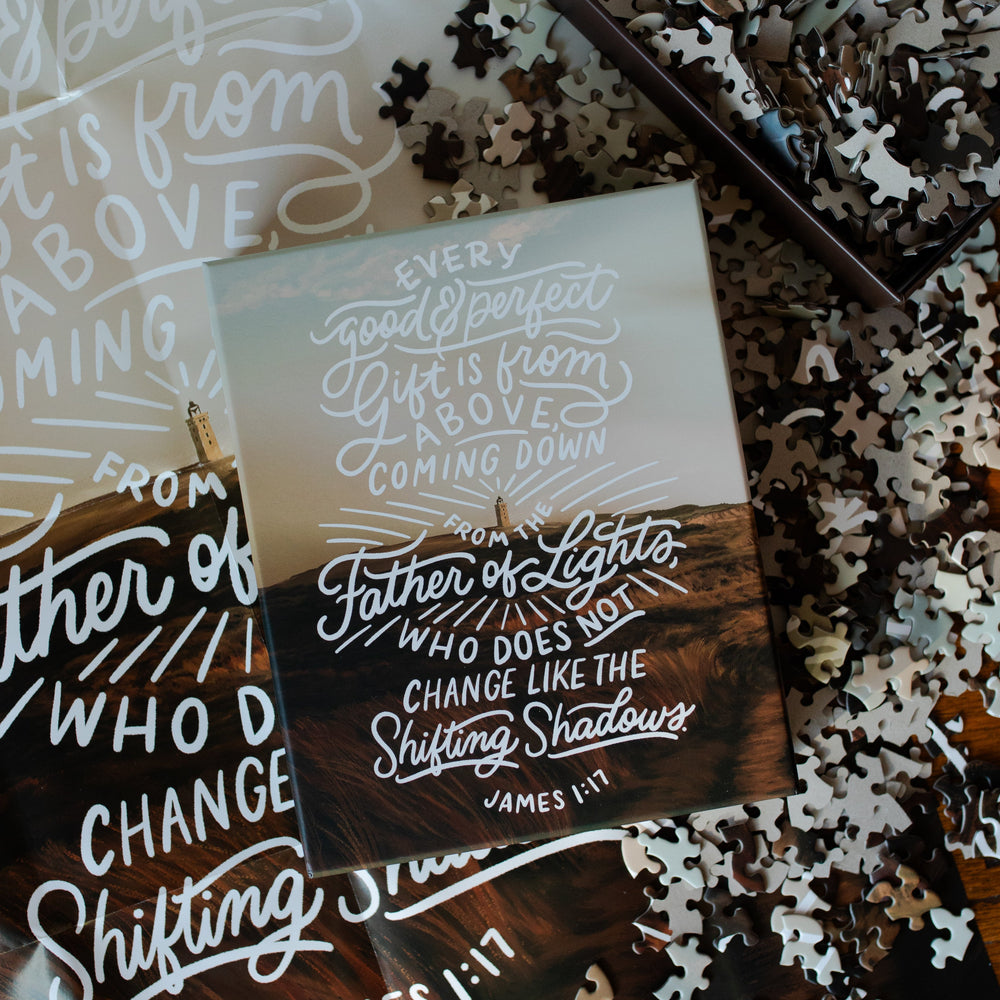 & perfe
t is from
ABOVE,
MING
FROM
ther of
WHO D
CHANGE
Shifting Shad
ES 1:17
EVERY
good & perfect
Gift is from
ABOVE,
COMING DOWN
FROM THE
Father of Lights,
WHO DOES NOT
CHANGE LIKE THE
Shifting Shadows.
JAMES 1:17